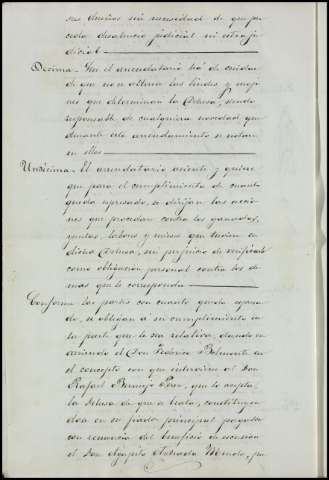 sus dueños sin necesidad de que pre
ceda desahucio judicial ni extraju
dicial.
Decima.- Que el arrendatario há de cuidar
de que no se alteren las lindes y mojo
nes que determinan la Dehesa, siendo
responsable de cualquiera novedad que
durante este arrendamiento se notare
en ellos.
Undécima.- El arrendatario consiente y quiere
que para el cumplimiento de cuanto
queda espresado, se dirijan las accio
nes que procedan contra los ganados,
frutos, labores y mieses que tuviere en
dicha Dehesa, sin perjuicio de verificarlo
como obligacion personal contra los de
mas que le corresponda.
Conformes las partes con cuanto queda espresa
do, se obligan á su cumplimiento en
la parte que le sea relativa, dando en
arriendo el Don Federico Belmonte en
el concepto con que interviene al Don
Rafael Bermejo Perez, que lo acepta,
la Dehesa de que se trata, constituyen
dose en su fiador principal pagador
con renuncia del beneficio de escusion
el Don Agapito Andrada Merelo, pa